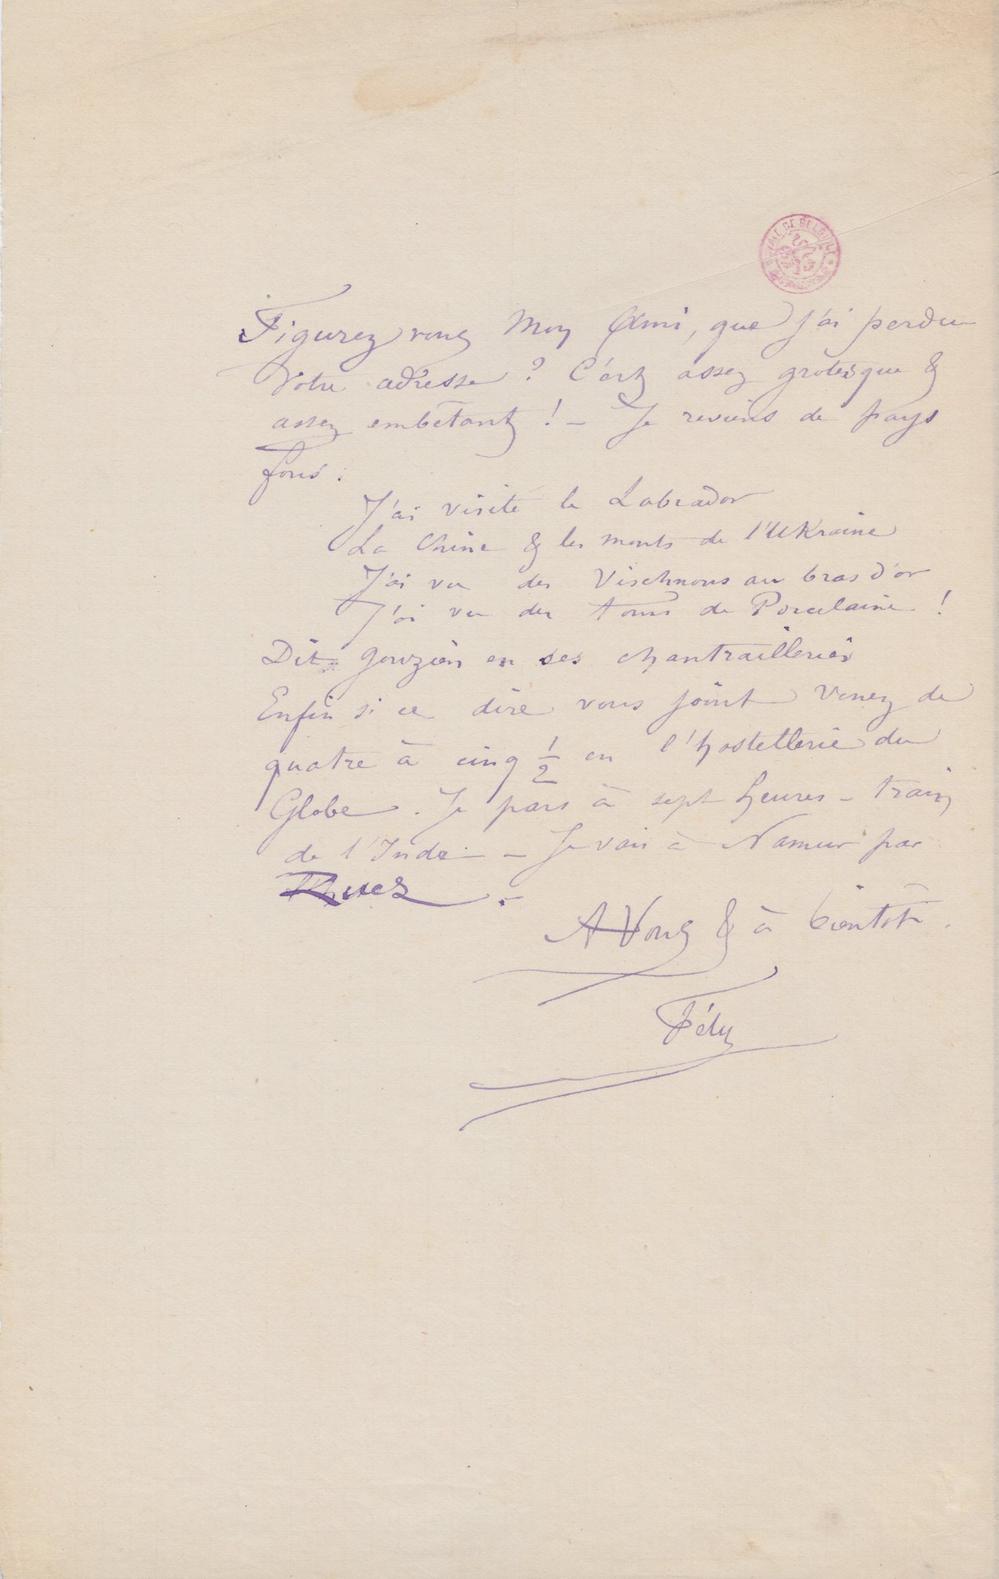 Figurez vous Mon Ami, que j'ai perdu
Votre adresse ? C'est assez grotesque &
assez embêtant ! – Je reviens de pays
fous :
J'ai visité le Labrador
La Chine & les monts de l'Ukraine
J'ai vu des Vischnous au bras d'or
J'ai vu des tours de Porcelaine !
Dit Gouzien en ses chantrailleries
Enfin si ce dire vous joint venez de
quatre à cinq 1/2 en l'hostellerie du
Globe. Je pars à sept heures – train
de l'Inde – Je vais à Namur par
Suez.
A Vous & à bientôt.
Fély